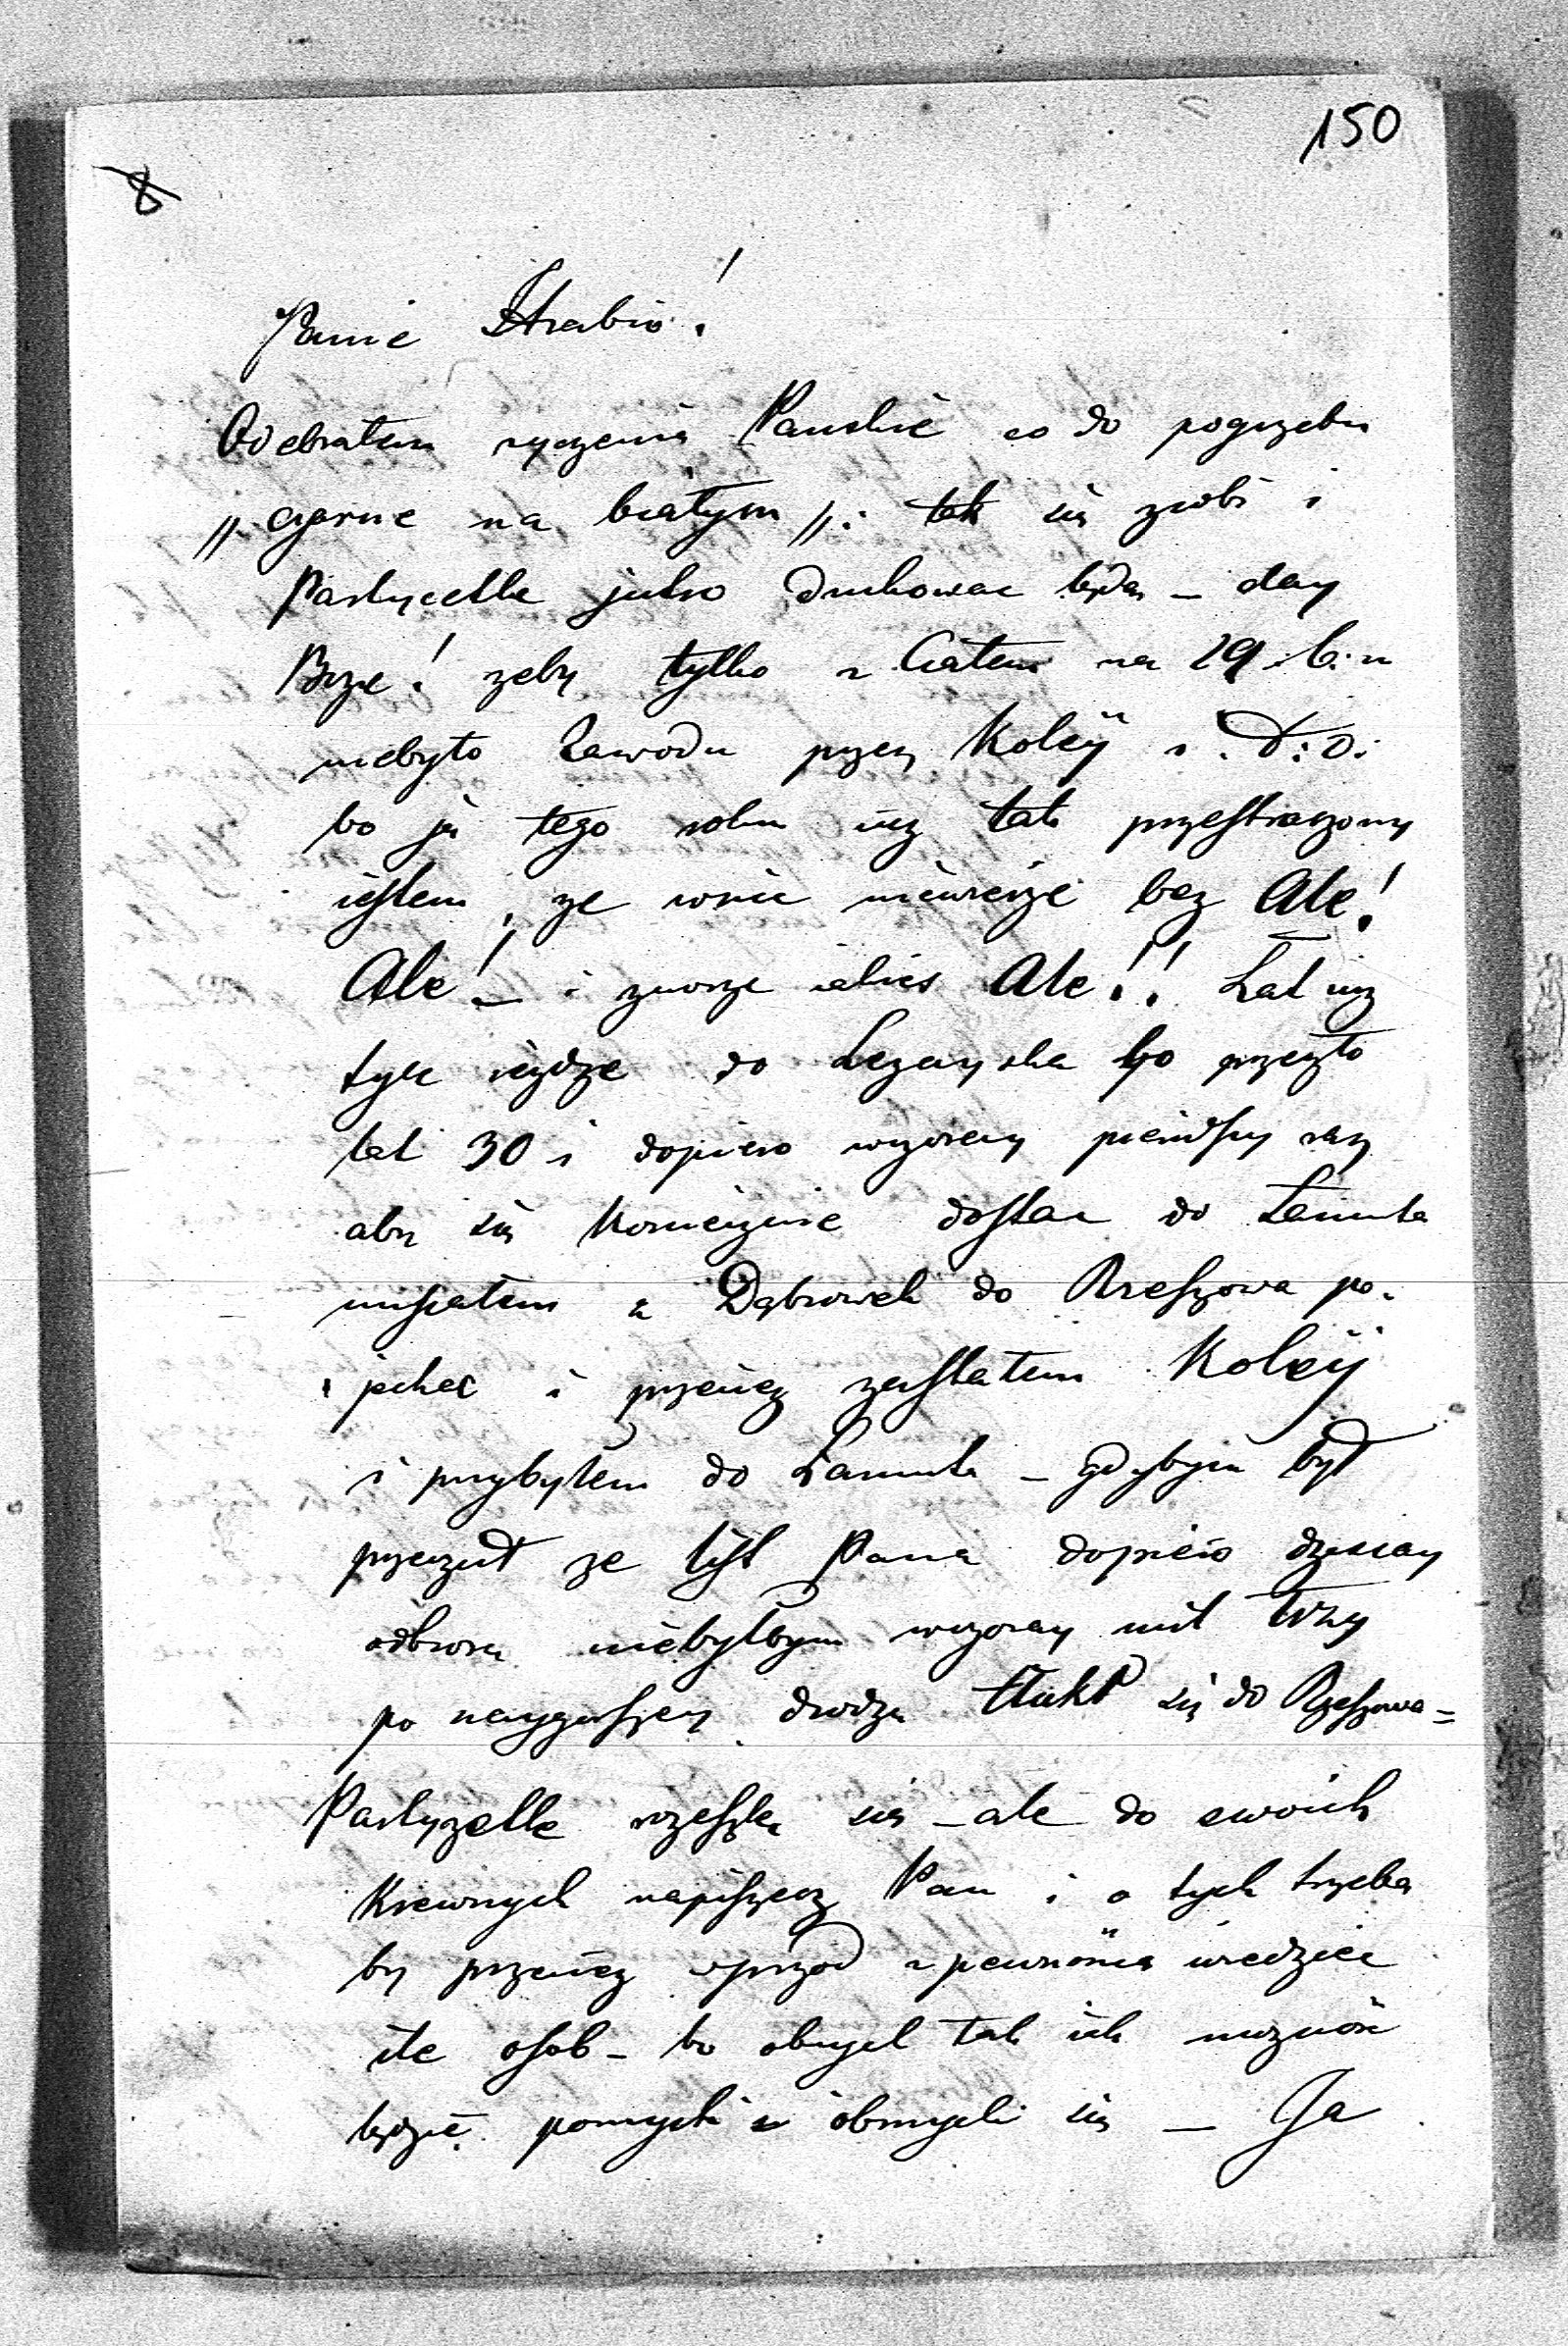 150
8
Panie Hrabio!
Odebrałem życzenia Pańskie co do pogrzebu
„czarne na białym„ : tak się zrobi i
Partycelle jutro drukowac będą – day
Boże! zeby tylko z Ciałem na 29 b: m
niebyło Zawodu przez Koleÿ i. t: d:
bo ja tego roku iuz tak przestraszony
iestem, ze w nic niewierze bez Ale!
Ale! – i znowu iakies Ale!! Lat iuz
tyle ieżdze do Lezayska bo przeszło
lat 30 i dopiero wczoray pierwszy raz
aby się koniecznie dostac do Łancuta
musiałem z Dąbrowek do Rzeszowa po-
jechac i przeciez zastałem Koleÿ
i przybyłem do Łancuta – gdybym był
przeczuł ze list Pana dopiero dzisiay
odbiore niebyłbym wczoray mil trzy
po naygorszey drodze tłukł się do Rzeszowa =
Partyzelle rozeszlą się – ale do swoich
Krewnych napiszesz Pan i o tych trzeba
by przeciez wprzod z pewnoscia wiedziec
ile osob – bo obmysl tak ich
będzie pomysli obmysli się – Ja